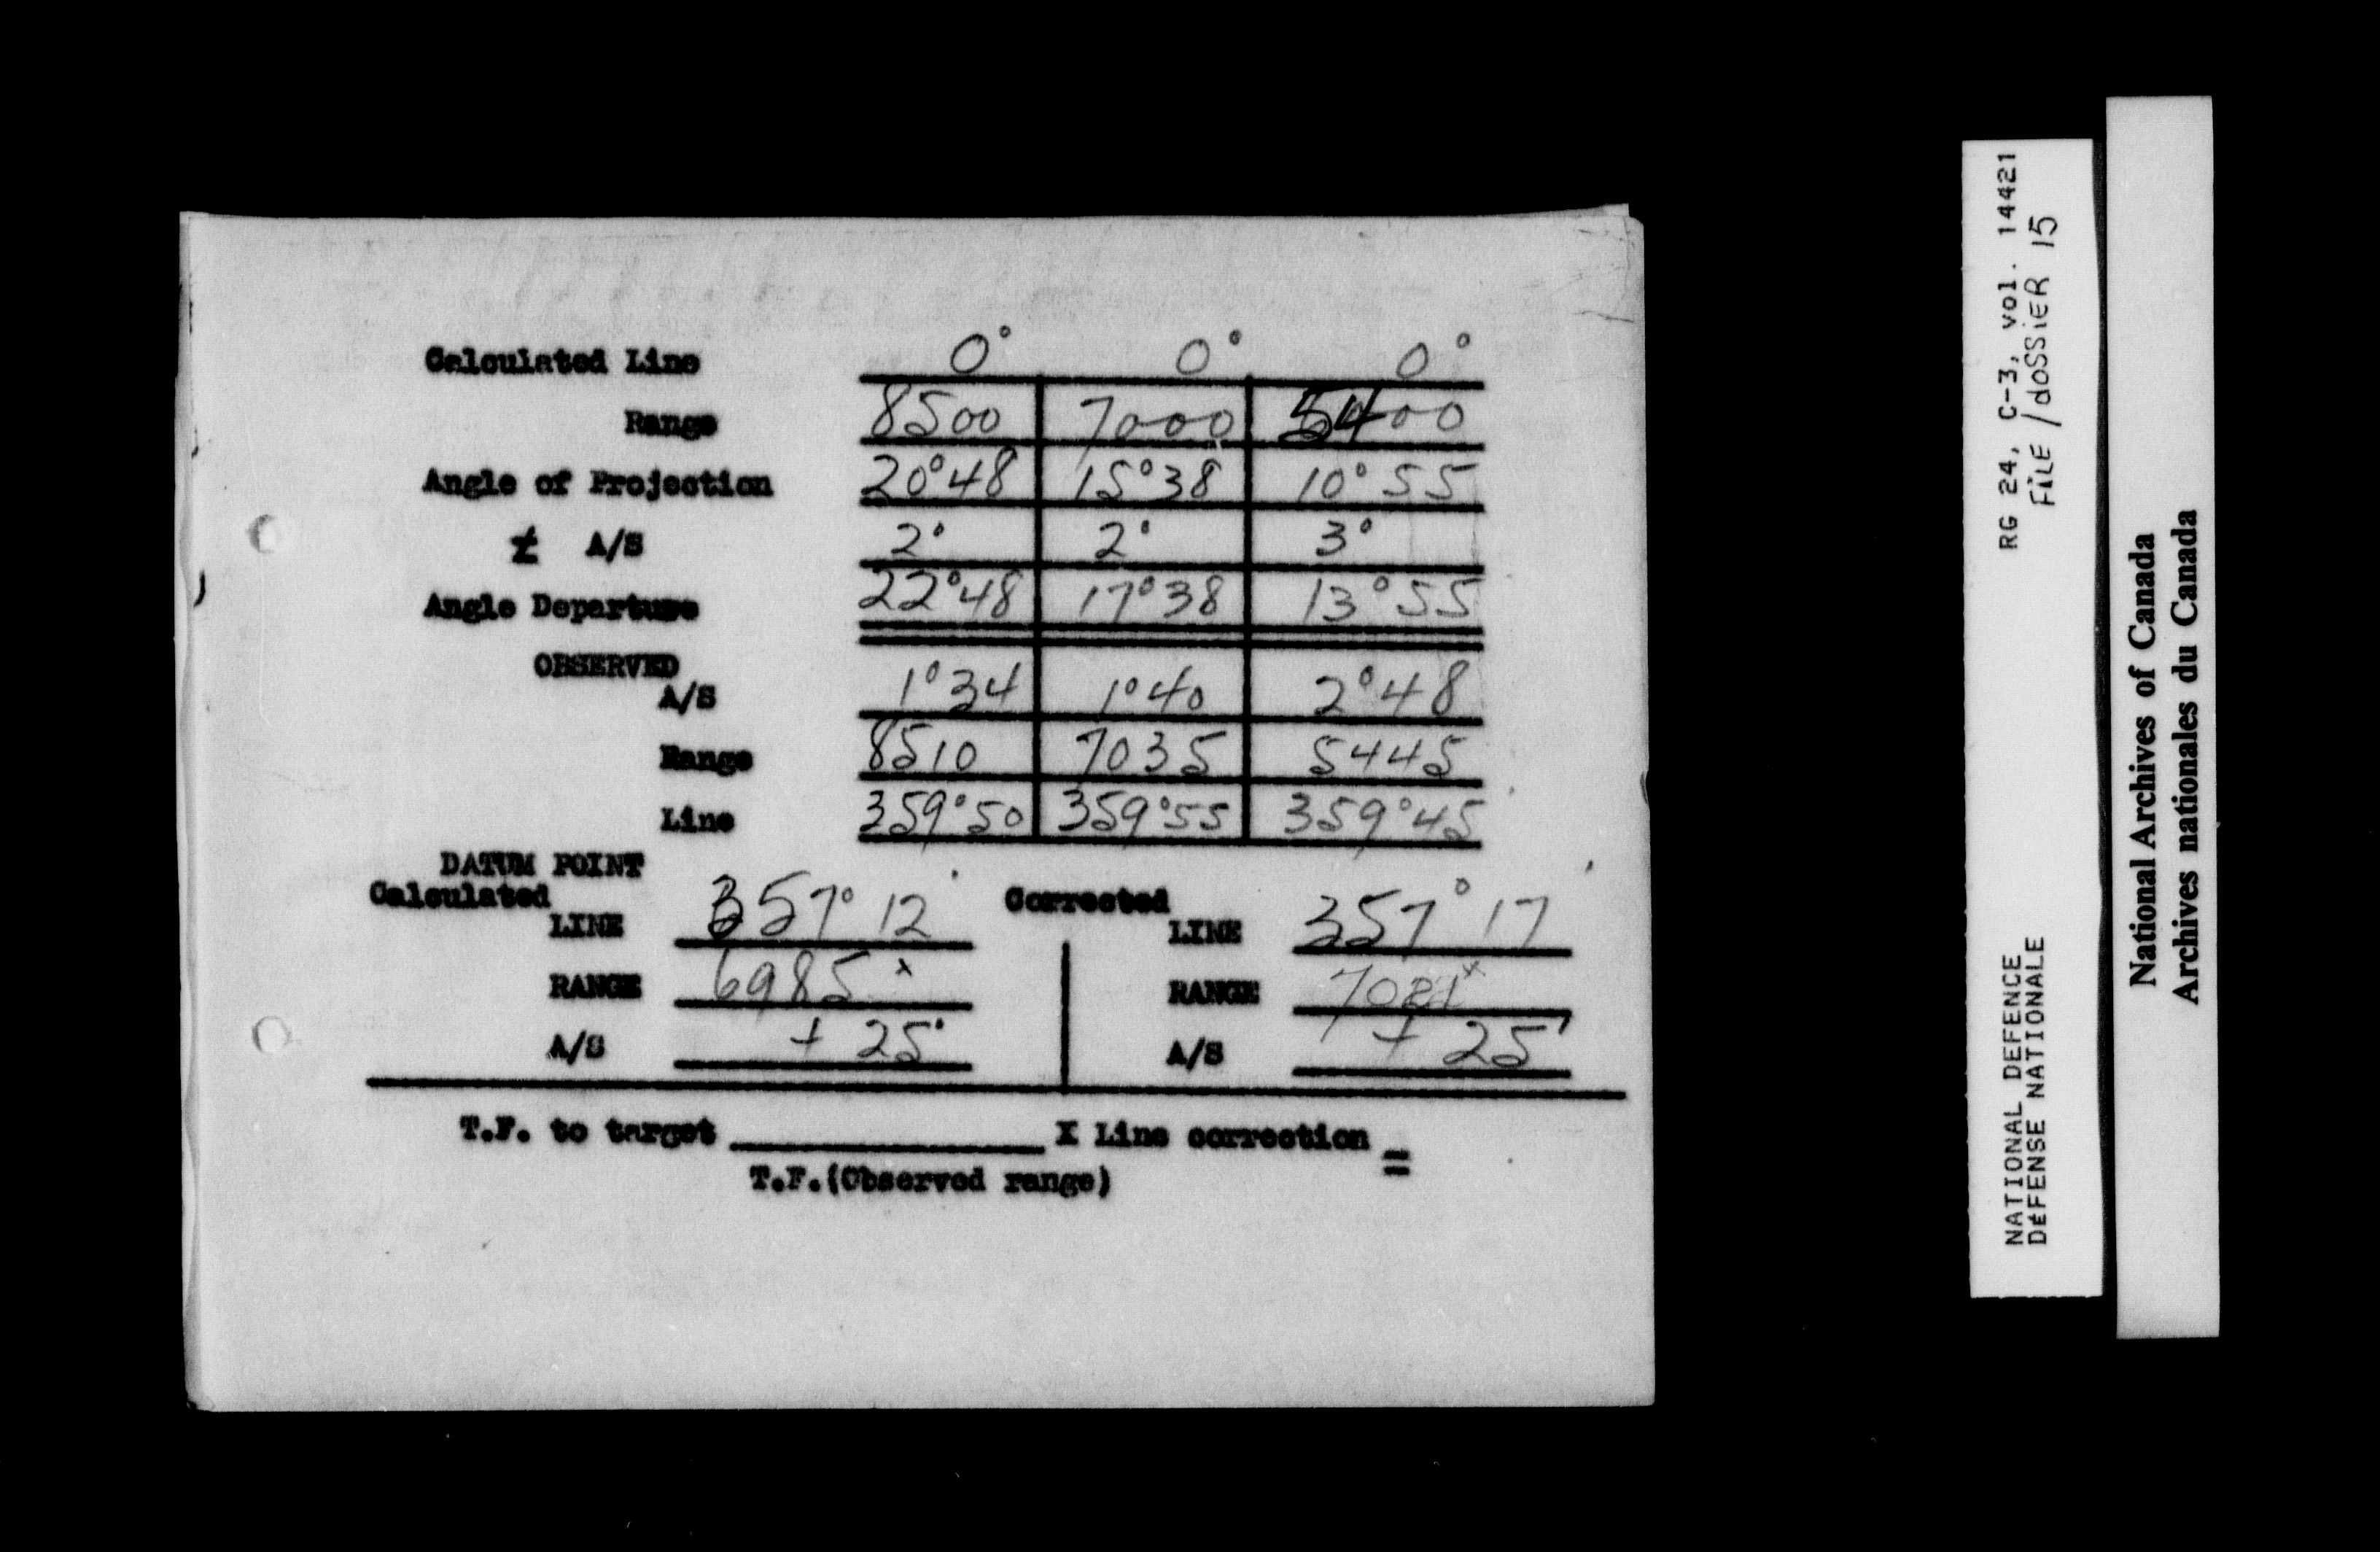 Calculated Line 0° 0° 0°
Range 8500 7000 5400
Angle of Projection 20°48 15°38 10°55
± A/S 2° 2° 3°
Angle Departure 22°48 17°38 13°55
OBSERVED
A/S 1°34 1°40 2°48
Range 8510 7035 5445
Line 359°50 359°55 359°45
DATUM POINT
Calculated Corrected
LINE 357° 12' LINE 357° 17'
RANGE 6985 x RANGE x
A/S + 25' A/S + 25'
T.F. to target X Line correction =
T.F.(Observed range)
RG 24, C-3, vol. 14421
FiLE /dOSSiER 15
NATIONAL DEFENCE
DÉFENSE NATIONALE
National Archives of Canada
Archives nationales du Canada